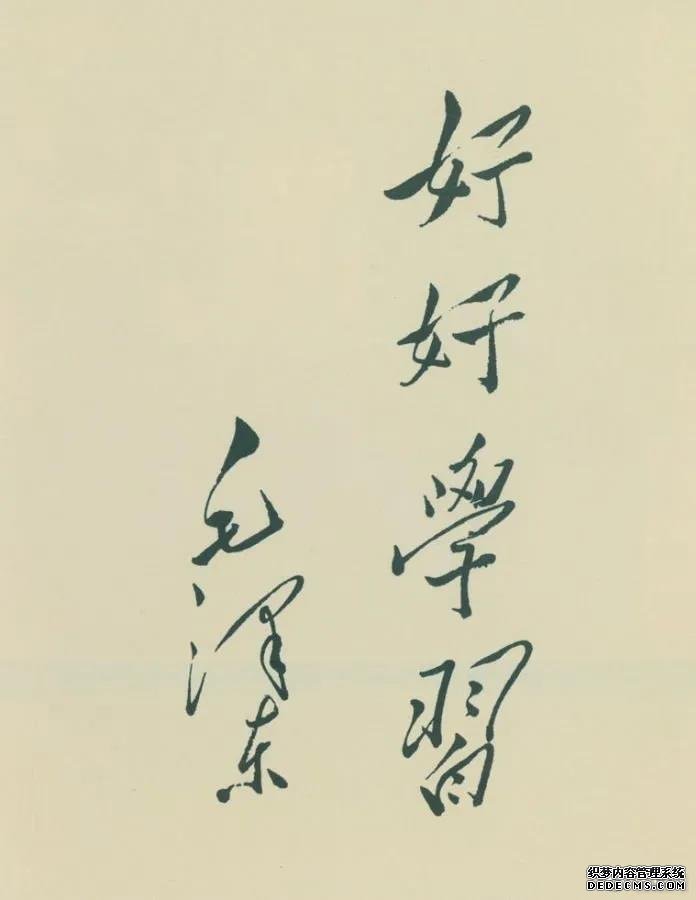 好好學習
毛泽东
织梦内容管理系统
DEDECMS.COM